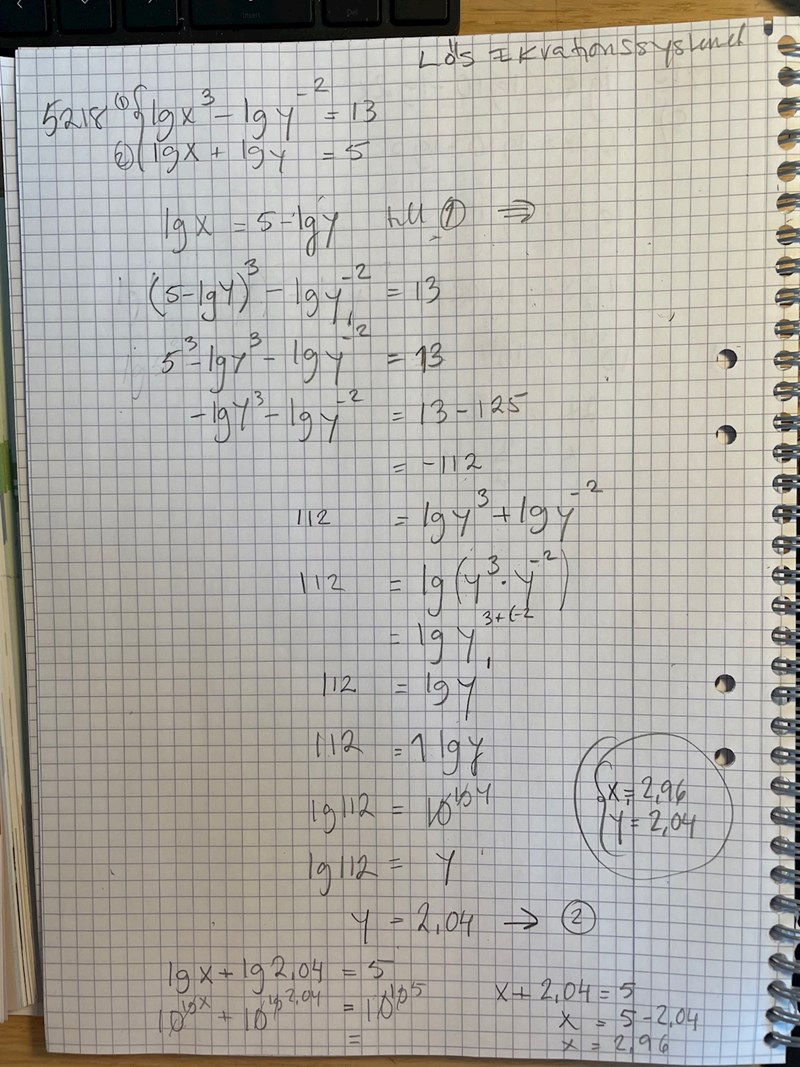 Lös Ekvationssystemet
5218 ① { lg x³ - lg y⁻² = 13
② lg x + lg y = 5
lg x = 5 - lg y till ① ⇒
(5 - lg y)³ - lg y⁻² = 13
5³ - lg y³ - lg y⁻² = 13
- lg y³ - lg y⁻² = 13 - 125
= -112
112 = lg y³ + lg y⁻²
112 = lg (y³ · y⁻²)
= lg y³⁺⁽⁻²
112 = lg y¹
112 = 1 lg y
lg 112 = 10^lg y
lg 112 = y
y = 2,04 → ②
lg x + lg 2,04 = 5
10^lg x + 10^lg 2,04 = 10^lg 5
=
x + 2,04 = 5
x = 5 - 2,04
x = 2,96
{ x = 2,96
y = 2,04